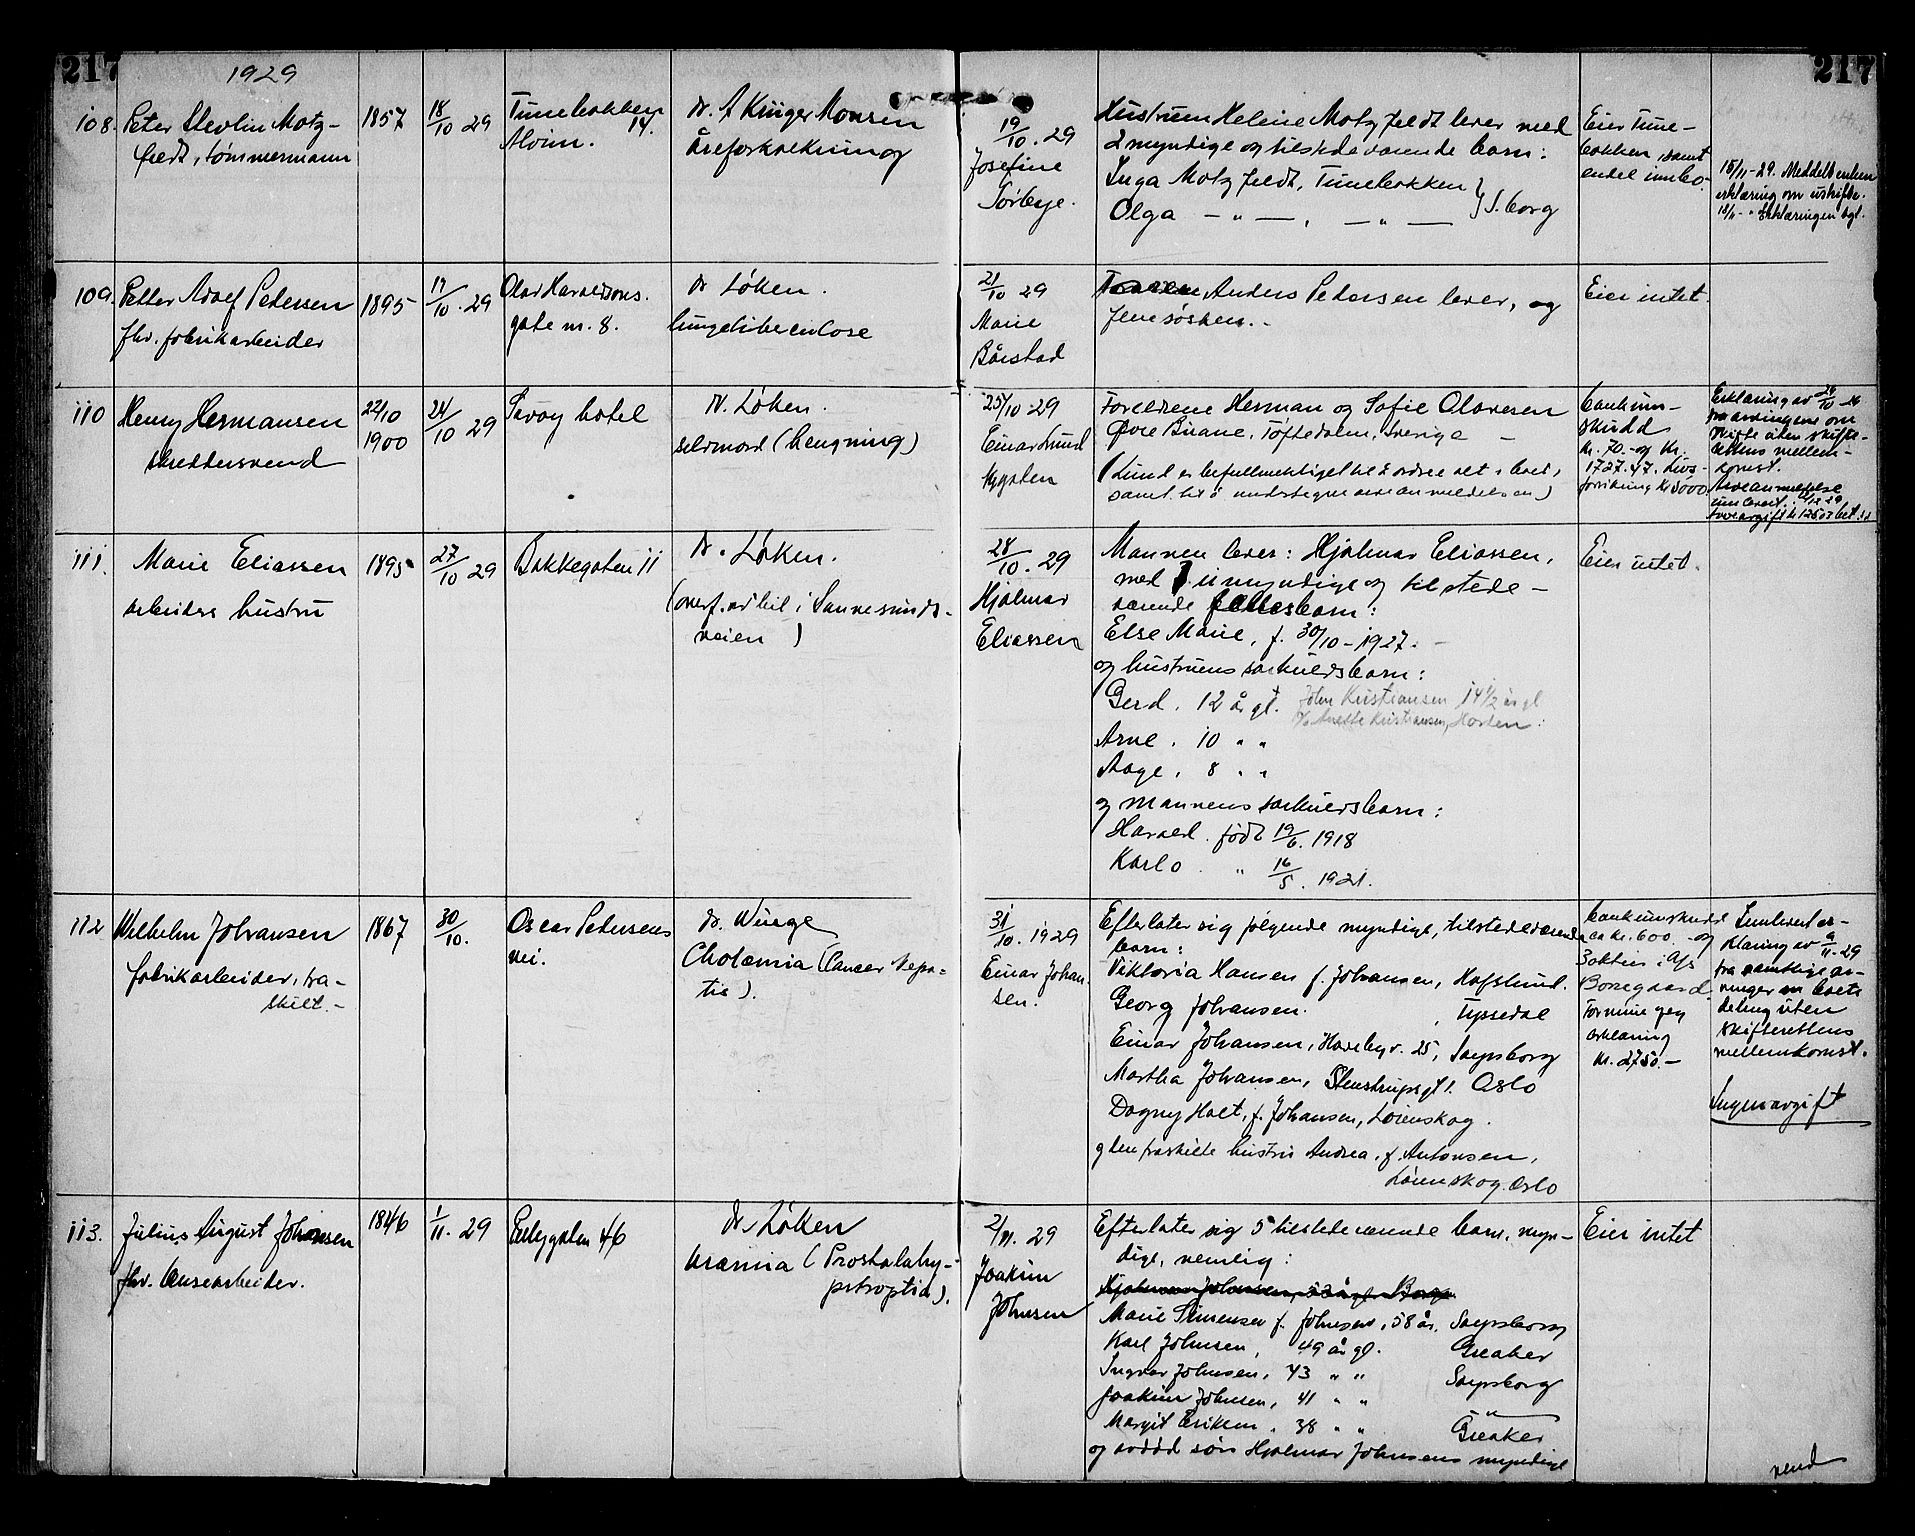 217
217
1929
108.
Peter Slevlin Motz-
feldt, tømmermann
1857
18/10 29
Tunebakken
14.
Alvim.
dr. A Krüger Monsen
åreforkalkning
19/10. 29
Josefine
Torbye.
Hustruen Helene Motzfeldt lever med
2 myndige og tilstedeværende barn:
Inga Motzfeldt, Tunebakken
Olga — " — , — " — } S.borg
Eier Tune-
bakken, samt
endel innbo.
15/11-29. Meddelt enken
erklæring om uskifte.
18/11- " Erklæringen tgl.
109.
Petter Adolf Pedersen
fhv. fabrikarbeider
1895
19/10. 29
Olav Haraldssons.
gate nr. 8.
dr Løken.
lungetuberculose
21/10 29
Marie
Bårstad
Anders Pedersen lever, og
flere søsken. -
Eier intet.
110
Henry Hermansen
skreddersvend
22/10
1900
24/10 29
Savoy hotel
dr. Løken.
selvmord (hengning)
25/10 29
Einar Lund
Nygaten
Foreldrene Herman og Sofie Olavesen
Øvre Buane, Töftedalen, Sverige -
(Lund er befullmektiget til å ordne alt i boet,
samt til å undertegne arveanmeldelsen)
bankinn-
skudd
kr. 70.- og kr.
1727.47. Livs-
forsikring kr 5000
Erklæring av 26/10-29
fra arvingene om
skifte uten skifte-
rettens mellem-
komst.
Arveanmeldelse
111.
Marie Eliassen
arbeiders hustru
1895
27/10 29
Bakkegaten 11
dr. Løken.
(overf. av bil i Sannesunds-
veien )
28/10. 29
Hjalmar
Eliassen
Mannen lever: Hjalmar Eliassen,
med 1 umyndige og tilstede-
værende fellesbarn:
Else Marie, f. 30/10-1927. -
og hustruens særkullsbarn:
Gerd. 12 år gl. John Kristiansen, 14 1/2 år gl
Anette Kristiansen, Horten.
Arne. 10 " "
Aage, 8 " "
og mannens særkullsbarn:
Harald. født 19/6. 1918
Karlo. " 16/5. 1921.
Eier intet.
112
Wilhelm Johansen
fabrikarbeider, fra-
skilt. -
1867
30/10.
Oscar Pedersens
vei.
dr. Winge
Cholæmia (Cancer hepa-
tis).
31/10. 1929
Einar Johan-
sen.
Efterlater sig følgende myndige, tilstedeværende
barn:
Viktoria Hansen f. Johansen, Hafslund.
Georg Johansen. , Tyssedal
Einar Johansen, Haralbyv. 25, Sarpsborg
Martha Johansen, Stenstrupsgt 1. Oslo
Dagny Holt, f. Johansen, Lørenskog.
og den fraskilte hustru Andrea, f. Antonsen,
Lørenskog. Oslo
bankinnskudd
ca kr. 600.- og
5 aktier i A/s
Borregaard.
Formue
erklæring
kr. 2750.-
Innlevert er-
klæring av 9/11-29
fra samtlige ar-
vinger om boets
deling uten
skifterettens
mellemkomst.
Ingen avgift
113.
Julius August Johnsen
fhv. lensearbeider.
1846
1/11. 29
Peebygaten 46
dr. Løken
uræmia (Prostatahy-
pertrophia).
2/11. 29
Joakim
Johnsen
Efterlater sig 5 tilstedeværende barn, myn-
dige, nemlig:
Hjalmar Johnsen, 53 år gl. Borge
Marie Simensen f. Johnsen, 58 år, Sarpsborg
Karl Johnsen, 49 år gl. Greaker
Ingvar Johnsen, 43 " " Sarpsborg
Joakim Johnsen, 41 " " — " —
Margit Eriksen, 38 " " Greaker
og avdød søn Hjalmar Johnsens myndige
Eier intet
vend